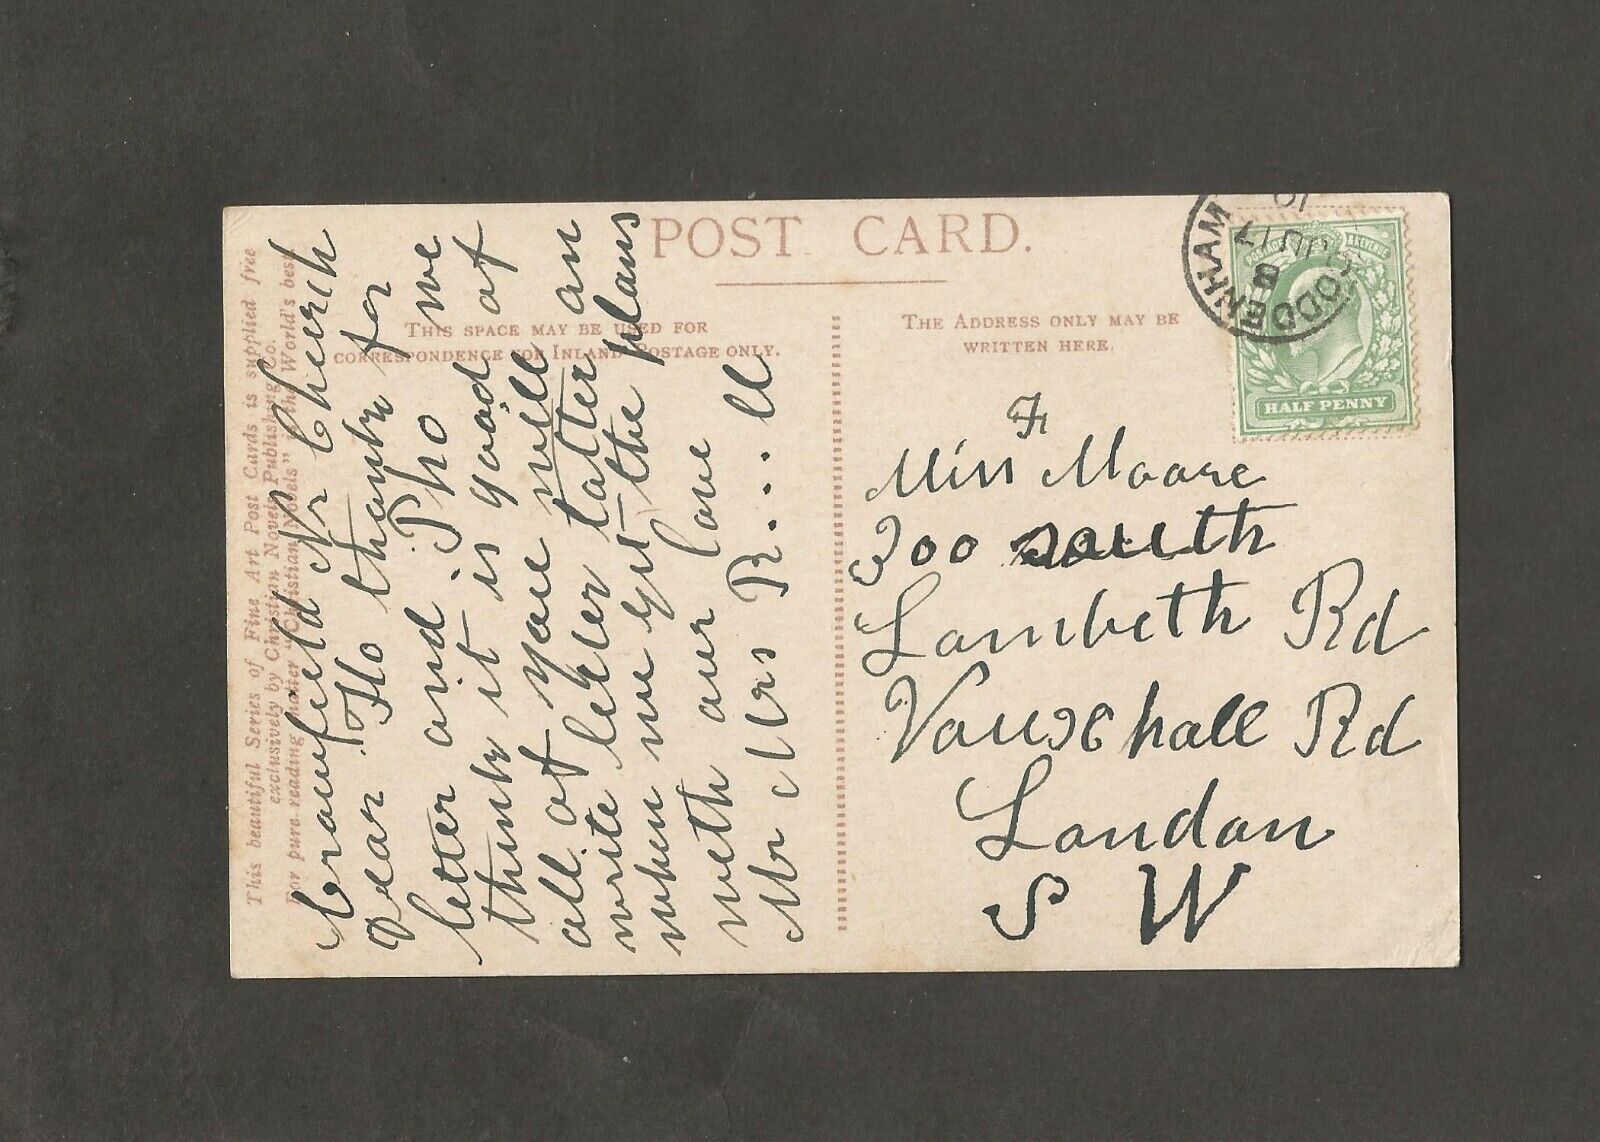 POST CARD.
THIS SPACE MAY BE USED FOR
CORRESPONDENCE FOR INLAND POSTAGE ONLY.
THE ADDRESS ONLY MAY BE
WRITTEN HERE.
This beautiful Series of Fine Art Post Cards is supplied free
exclusively by Christian Novels Publishing Co.
For pure reading matter "Christian Novels" is the World's best.
Crawfeld Nr Church
Dear Flo thanks for
letter and Pho we
think it is good of
all of you will
write letter latter an
when we get the plans
with our love
Mr Mrs R....U
DDENHAM
JU 17
10
HALF PENNY
F
Miss Moore
300 South
Lambeth Rd
Vauxhall Rd
London
S W